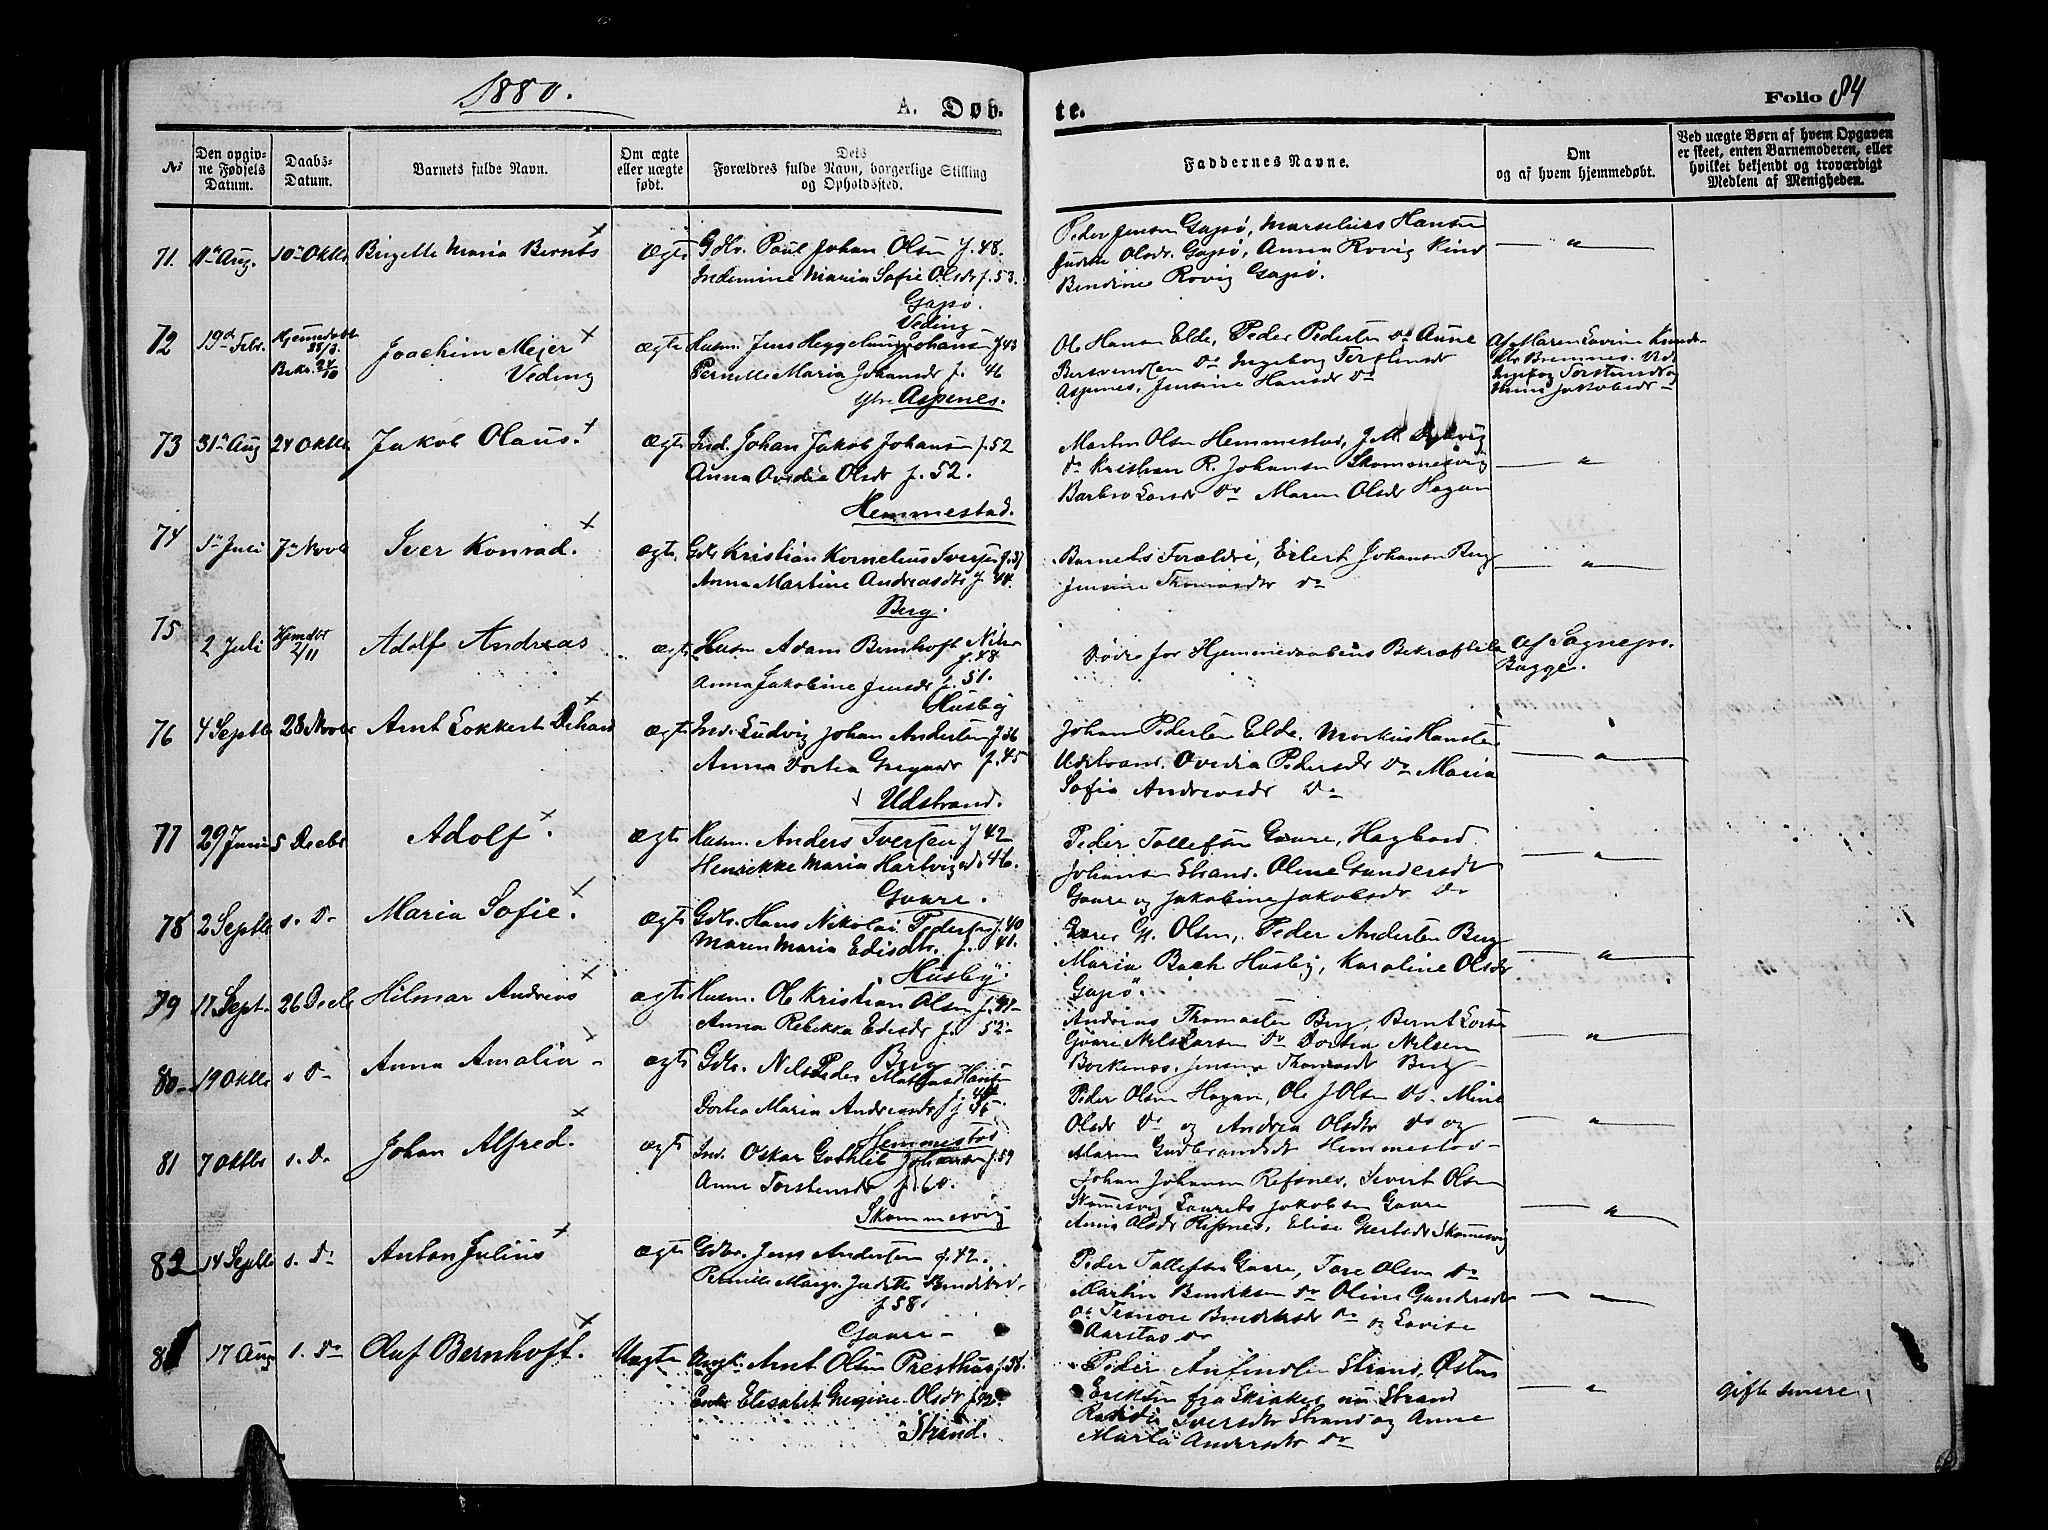 1880.
A. Døb-
te.
Folio 84
No
Den opgiv-
ne Fødsels
Datum.
Daabs-
Datum.
Barnets fulde Navn.
Om ægte
eller uægte
født.
Dets
Forældres fulde Navn, borgerlige Stilling
og Opholdssted.
Faddernes Navne.
Om
og af hvem hjemmedøbt.
Ved uægte Børn af hvem Opgaven
er skeet, enten Barnemoderen, eller
hvilket bekjendt og troværdigt
Medlem af Menigheden.
71. 11te Aug. 10de Oktbr Birgette Maria Bernts ægte Gdbr. Paul Johan Olsen f. 48.
Indemine Maria Sofie Olsdr f. 53.
Gapø.
Peder Jensen Gapø, Marselius Hansen
Olsdr. Gapø, Anna Rovig
Rovig Gapø.
72 19de Febr. Hjemmedøbt
Bekr. 24/10
Joachim Mejer
Veding
ægte Husm. Jens Heggelund Johansen f 43
Veding
Pernille Maria Johansdr f. 46
Aspenes.
Ole Hansen Elde, Peder Pedersen Do Anne
Berventsen Do Ingeborg Torstensdr
Aspenes, Jensine Hansdr Do
Af Maren Lovine
Bremnes. Vid.
Ingeborg Torstensdr og
Jakobsdr
73 31te Aug 24 Oktbr Jakob Olaus. ægte Ind. Johan Jakob Johansen f. 52
Anna Ovidia Olsdr f. 52.
Hemmestad.
Martin Olsen Hemmestad,
Do Kristian R. Johansen Skommesvig
Barbro Larsdr Do Maren Olsdr Hagan
74 1te Juli 7de Novbr Iver Konrad. ægte Gdbr Kristian Kornelius Iversen f. 37
Anna Martine Andreasdtr f 44.
Berg.
Barnets Forældre, Eilert Johansen Berg
Jensine Thomasdtr Do
75 2 Juli Hjemdøbt
2/11
Adolf Andreas ægte Husm Adam Bernhoft Nilsen
f. 48
Anna Jakobine Jensdr f. 51.
Husby
Døde før Hjemmedaabens Bekræftelse
Af Sognepr.
Bugge.
76 4 Septbr 28 Novbr Arnt Lokkert Rikard ægte Ind. Ludvig Johan Andersen f 36
Anna Dortea Gregersdr f. 45
Udstrand.
Johan Pedersen Elde, Markus Hansen
Udstrand. Ovidia Pedersdr Do Maria
Sofia Andreasdr Do
77 29 Juni 5 Decbr Adolf. ægte Husm. Anders Iversen f 42
Henrikke Maria Hartvigsd. 46.
Gaare.
Peder Tollefsen Gaare, Hagbard
Johansen Strand. Oline Gundersdr
Gaare og Jakobine Jakobsdr Do
78 2 Septbr s. D- Maria Sofie. ægte Gdbr. Hans Nikolai Pedersen f. 40
Maren Maria Edisdtr. f. 41.
Husby.
G. Olsen, Peder Andersen Berg
Maria Bach Husby, Karoline Olsdr
Gapø.
79 17 Sept. 26 Decbr Hilmar Andreas ægte Husm. Ole Kristian Olsen f. 47-
Anna Rebekka Edisdr f. 52-
Berg
Andreas Thomassen Berg, Bernt Larsen
Gaare Nils Larsen Do Dortea Nilsen
Borkenes. Jensine Thomasdr Berg
80- 19 Oktbr s D- Anna Amalia- ægte Gdbr. Nils Peder Mathias Hansen
Dortea Maria Andreasdr f 45.
Hemmestad
Peder Olsen Hagan, Ole J Olsen Do. Mine
Olsdr Do og Andrea Olsdtr Do og
Maren Gudbrandsdt Hemmestad-
81 7 Oktbr s. D- Johan Alfred. ægte Ind. Oskar Gothlib Johansen f. 59
Anne Torstensdr f. 60.
Skommesvig
Johan Johansen Refsnes, Sivert Olsen
Skomesvig Laurits Jakobsen Gaare
Anna Olsdr Refsnes, Elise Gjertsdr Skomesvig
82 14 Septbr s. D- Anton Julius ægte Gdbr. Jens Andersen f. 42.
Pernille Margr. Judithe Bendiksd.
f 58.
Gaare-
Peder Tollefsen Gaare, Tore Olsen Do
Martin Bendiksen Do Oline Gundersdr
Do Bendiksdr Do og Lovise
Aarstad Do
8 17 Aug 1. D- Oluf Bernhoft. Uægte Ungk. Arnt Olsen Presthus f. 38.
Enke Elisabet Gregine Olsdr f. 42
Strand.
Peder Anfindsen Strand, Østen
Eriksen fra Skinker nu Strand
Iversdtr Strand og Anne
Marta Andersdtr Do
gifte senere